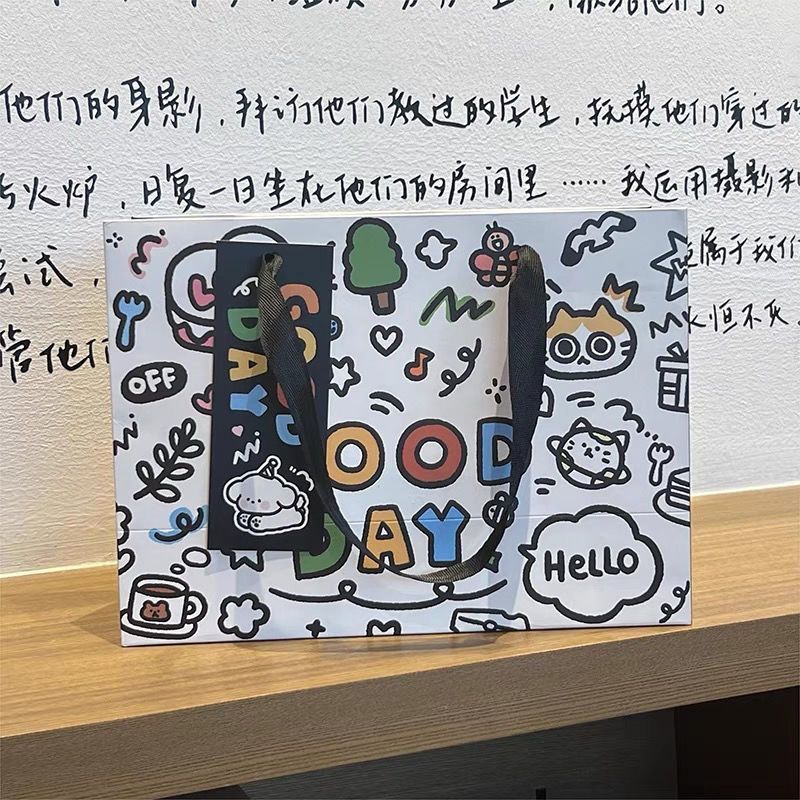 他们。
他们的身影，拜访他们教过的学生，抚摸他们穿过的
火炉，日复一日坐在他们的房间里……我运用摄影和
尝试，
属于我们
管他们
恒不灭
GOOD
DAY
OFF
OOD
DAY
HELLO